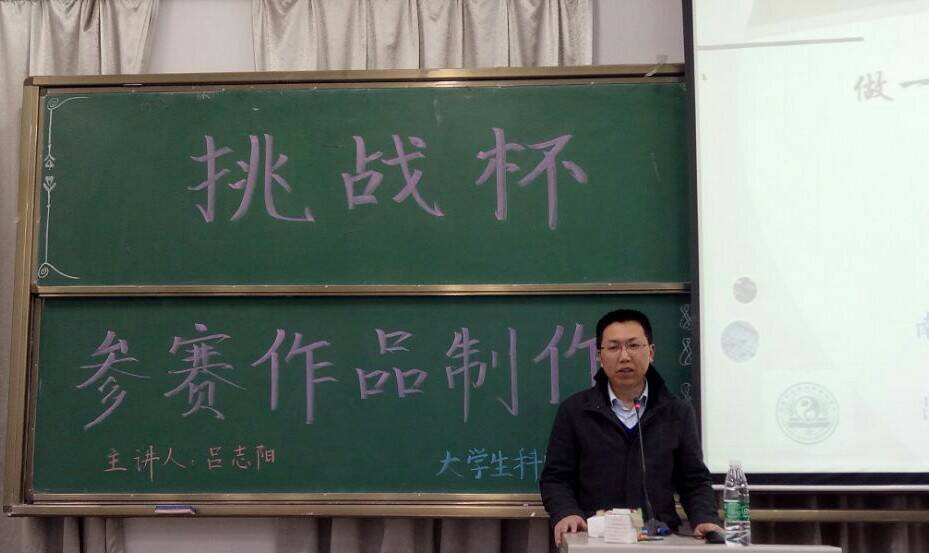 挑战杯
参赛作品制作
主讲人：吕志阳
大学生科
做一